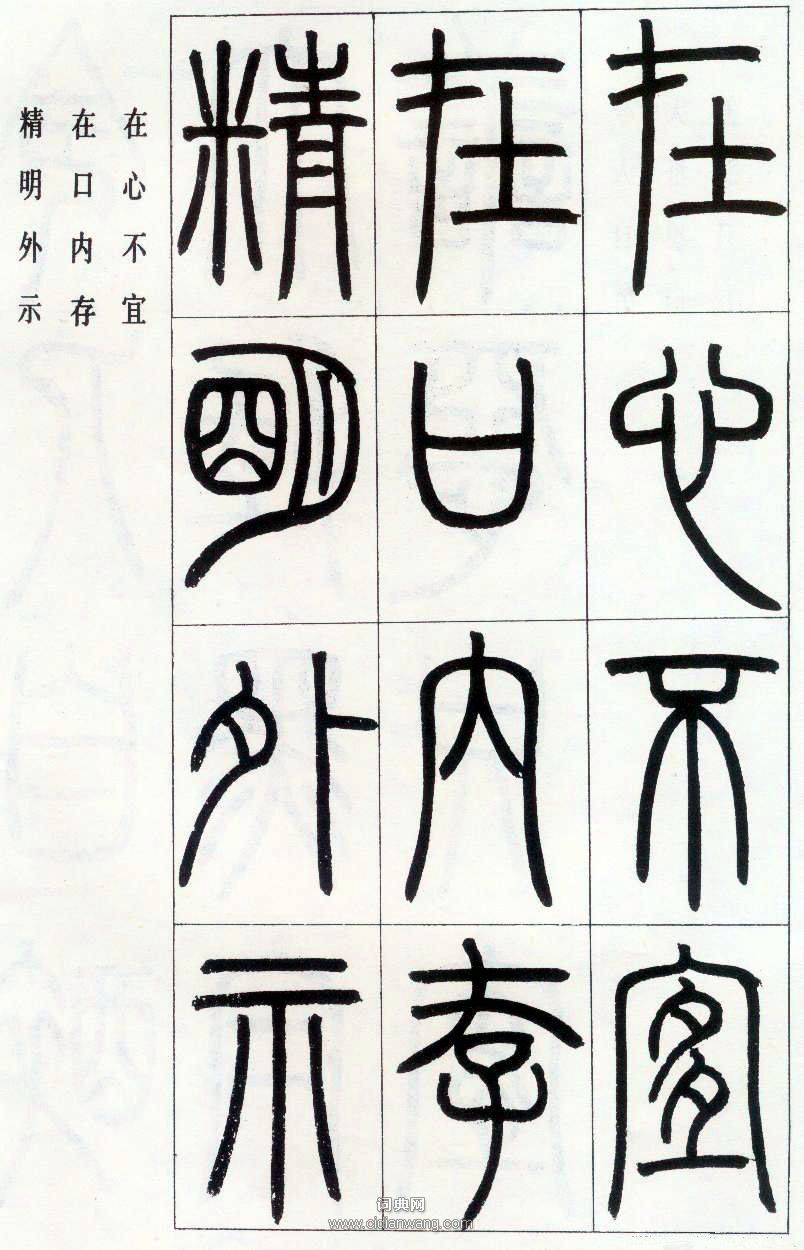 在心不宜
在口内存
精明外示
在心不宜
在口内存
精明外示
词典网
www.cidianwang.com